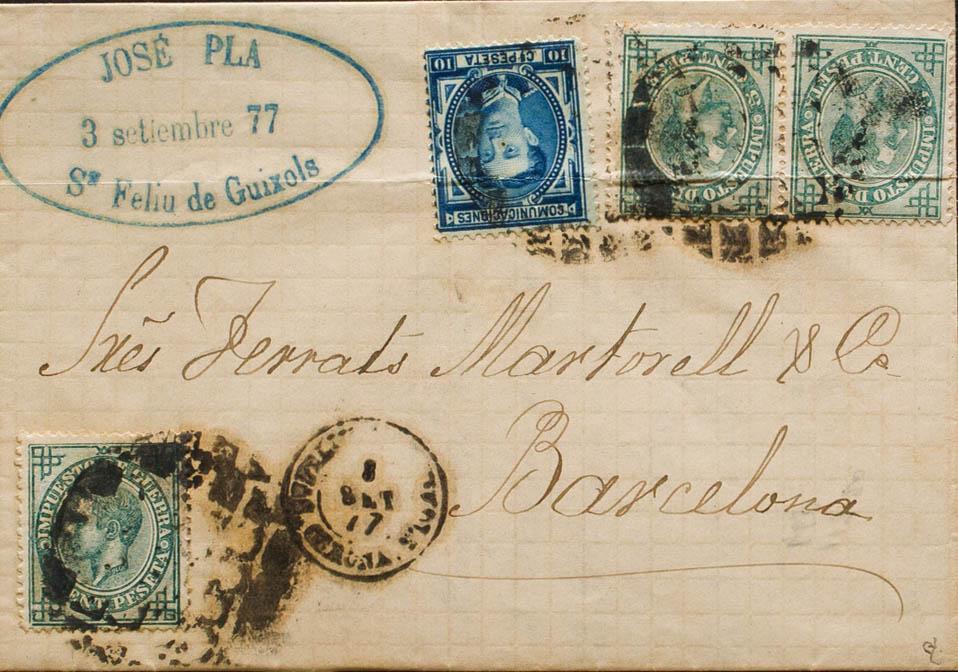 JOSÉ PLA
3 setiembre 77
Sn Feliu de Guixols
10 CS PESETA 10
COMUNICACIONES
5 CENT PESETA
IMPUESTO DE
CENT PESETA
IMPUESTO DE GUERRA
Sres Ferrats Martorell & Co
Barcelona
IMPUESTO DE GUERRA
CENT PESETA
8
SET
77